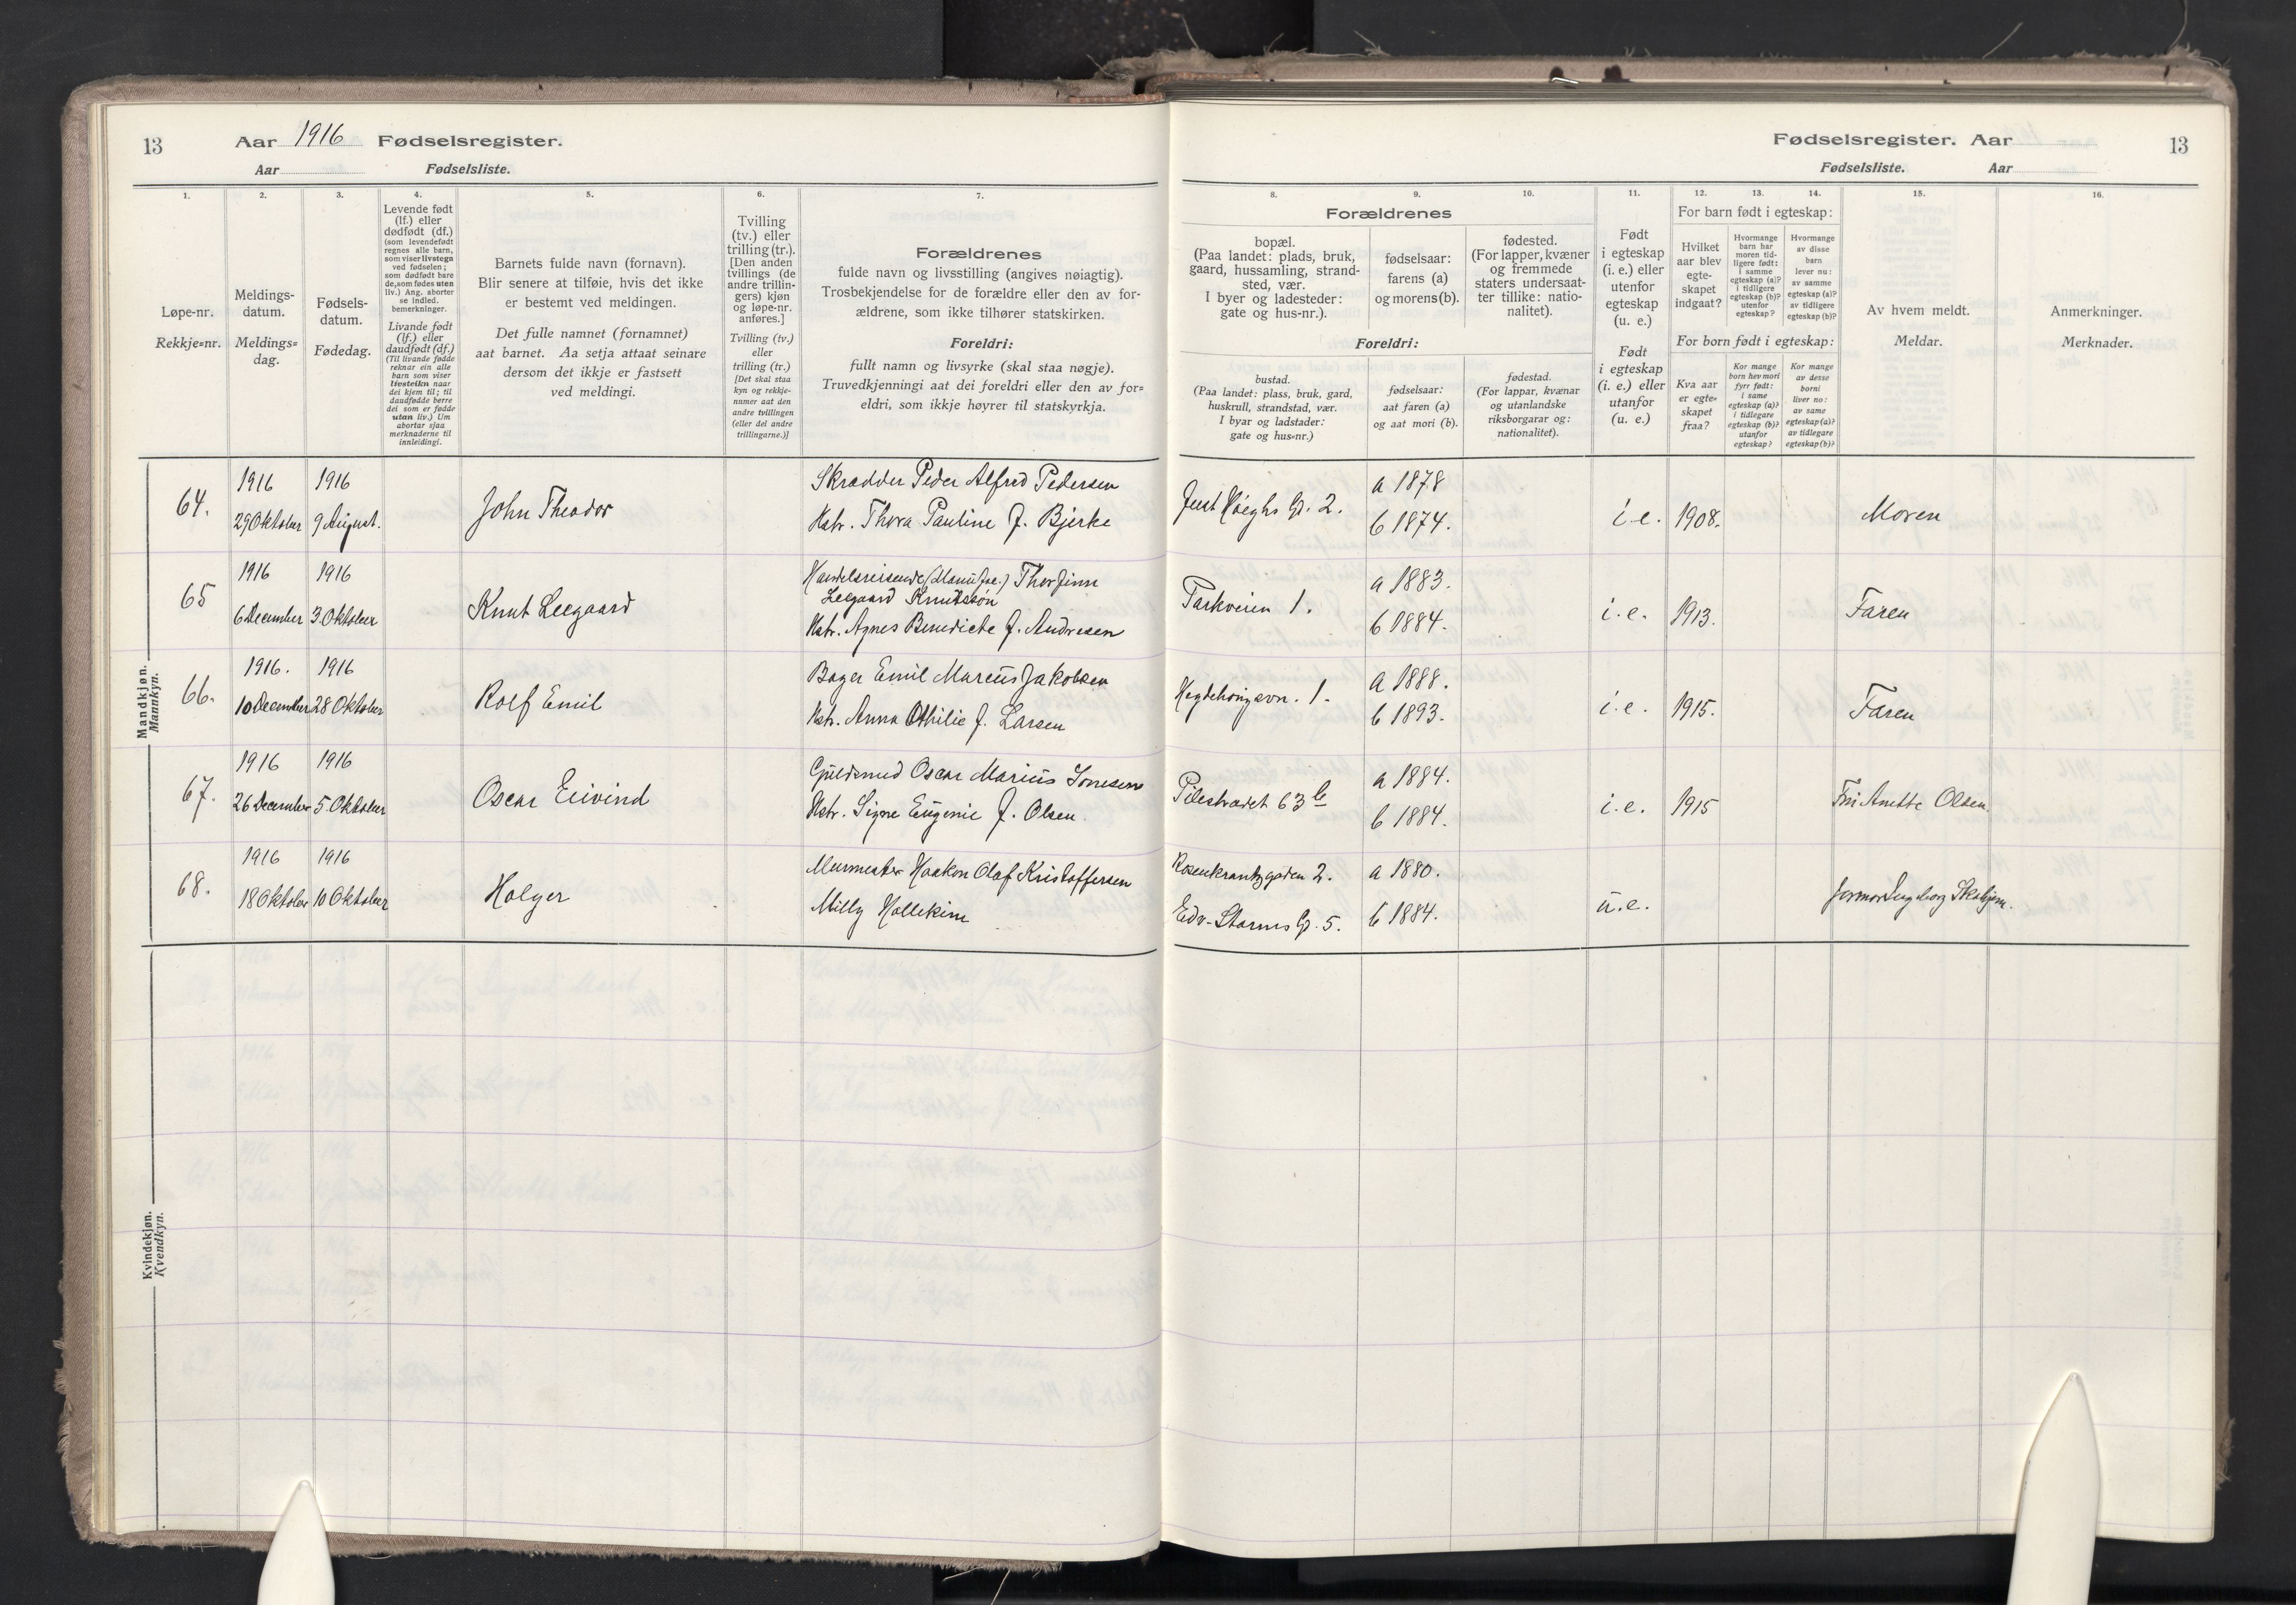 13
Aar 1916 Fødselsregister.
Aar Fødselsliste.
Fødselsregister. Aar
13
Fødselsliste. Aar
1.
2.
3.
4.
5.
6.
7.
8.
9.
10.
11.
12.
13.
14.
15.
16.
Løpe-nr.
Rekkje=nr.
Meldings-
datum.
Meldings=
dag.
Fødsels-
datum.
Fødedag.
Levende født
(lf.) eller
dødfødt (df.)
(som levendefødt
regnes alle barn,
som viser livstegn
ved fødselen;
som dødfødt bare
de, som fødes uten
liv.) Ang. aborter
se indled.
bemerkninger.
Livande født
(lf.) eller
daudfødt (df.)
(Til livande fødde
reknar ein alle
barn som viser
livsteikn naar
dei kjem til; til
daudfødde berre
dei som er fødde
utan liv.) Um
abortar sjaa
merknaderne til
innleidingi.
Barnets fulde navn (fornavn).
Blir senere at tilføie, hvis det ikke
er bestemt ved meldingen.
Det fulle namnet (fornamnet)
aat barnet. Aa setja attaat seinare
dersom det ikkje er fastsett
ved meldingi.
Tvilling
(tv.) eller
trilling (tr.).
[Den anden
tvillings (de
andre trillin-
gers) kjøn
og løpe-nr.
anføres.]
Tvilling (tv.)
eller
trilling (tr.)
[Det skal staa
kyn og rekkje-
numer aat den
andre tvillingen
(eller dei andre
trillingarne.)]
Forældrenes
fulde navn og livsstilling (angives nøiagtig).
Trosbekjendelse for de forældre eller den av for-
ældrene, som ikke tilhører statskirken.
Foreldri:
fullt namn og livsyrke (skal staa nøgje).
Truvedkjenningi aat dei foreldri eller den av for=
eldri, som ikkje høyrer til statskyrkja.
Forældrenes
bopæl.
(Paa landet: plads, bruk,
gaard, hussamling, strand-
sted, vær.
I byer og ladesteder:
gate og hus-nr.).
fødselsaar:
farens (a)
og morens (b).
fødested.
(For lapper, kvæner
og fremmede
staters undersaat-
ter tillike: natio-
nalitet).
Foreldri:
bustad.
(Paa landet: plass, bruk, gard,
huskrull, strandstad, vær.
I byar og ladstader:
gate og hus=nr.)
fødselsaar:
aat faren (a)
og aat mori (b).
fødestad.
(For lappar, kvænar
og utanlandske
riksborgarar og:
nationalitet).
Født
i egteskap
(i. e.) eller
utenfor
egteskap
(u. e.)
Født
i egteskap
(i. e.) eller
utanfor
(u. e.)
For barn født i egteskap:
Hvilket
aar blev
egte-
skapet
indgaat?
Hvormange
barn har
moren tid-
ligere født:
i samme
egteskap (a)?
i tidligere
egteskap (b)?
utenfor
egteskap?
Hvormange
av disse
barn
lever nu:
av samme
egteskap (a)?
av tidligere
egteskap (b)?
For born født i egteskap:
Kva aar
er egte=
skapet
fraa?
Kor mange
born hev mori
fyrr født:
i same
egteskap (a)?
i tidlegare
egteskap (b)?
utanfor
egteskap?
Kor mange
av desse
borni
liver no:
av same
egteskap (a)?
av tidlegare
egteskap (b)?
Av hvem meldt.
Meldar.
Anmerkninger.
Merknader.
Mandkjøn.
Mannkyn.
64.
1916
29 Oktober
1916
9 August.
John Theodor
Skrædder Peder Alfred Pedersen
Hstr. Thora Pauline f. Bjerke
Just Høeghs G. 2.
a 1878
b 1874.
i e.
1908.
Moren
65
1916
6 December
1916
3. Oktober
Knut Leegaard
Handelsreisende (Manufac.) Thorfinn
Leegaard Knutssøn
Hstr. Agnes Benedicte f. Andresen
Parkveien 1.
a 1883.
b 1884.
i. e.
1913.
Faren
66.
1916.
10 December
1916
28 Oktober
Rolf Emil
Bager Emil Marcus Jakobsen
Hstr. Anna Othilie f. Larsen
Hegdehaugsvn. 1.
a 1888.
b 1893.
i. e.
1915.
Faren
67.
1916
26 December
1916
5. Oktober
Oscar Eivind
Guldsmed Oscar Marius
Hstr. Signe Eugenie f. Olsen.
Pilestrædet 63 b
a 1884.
b 1884.
i. e.
1915
Fru Anette Olsen.
68.
1916
18 Oktober
1916
10 Oktober
Holger
Murmester Haakon Olaf Kristoffersen
Milly Hallekim
Rosenkrantzgaden 2.
Edv. Storms G. 5.
a 1880.
b 1884.
u. e.
Jormor Ingeborg
Kvindekjøn.
Kvendkyn.